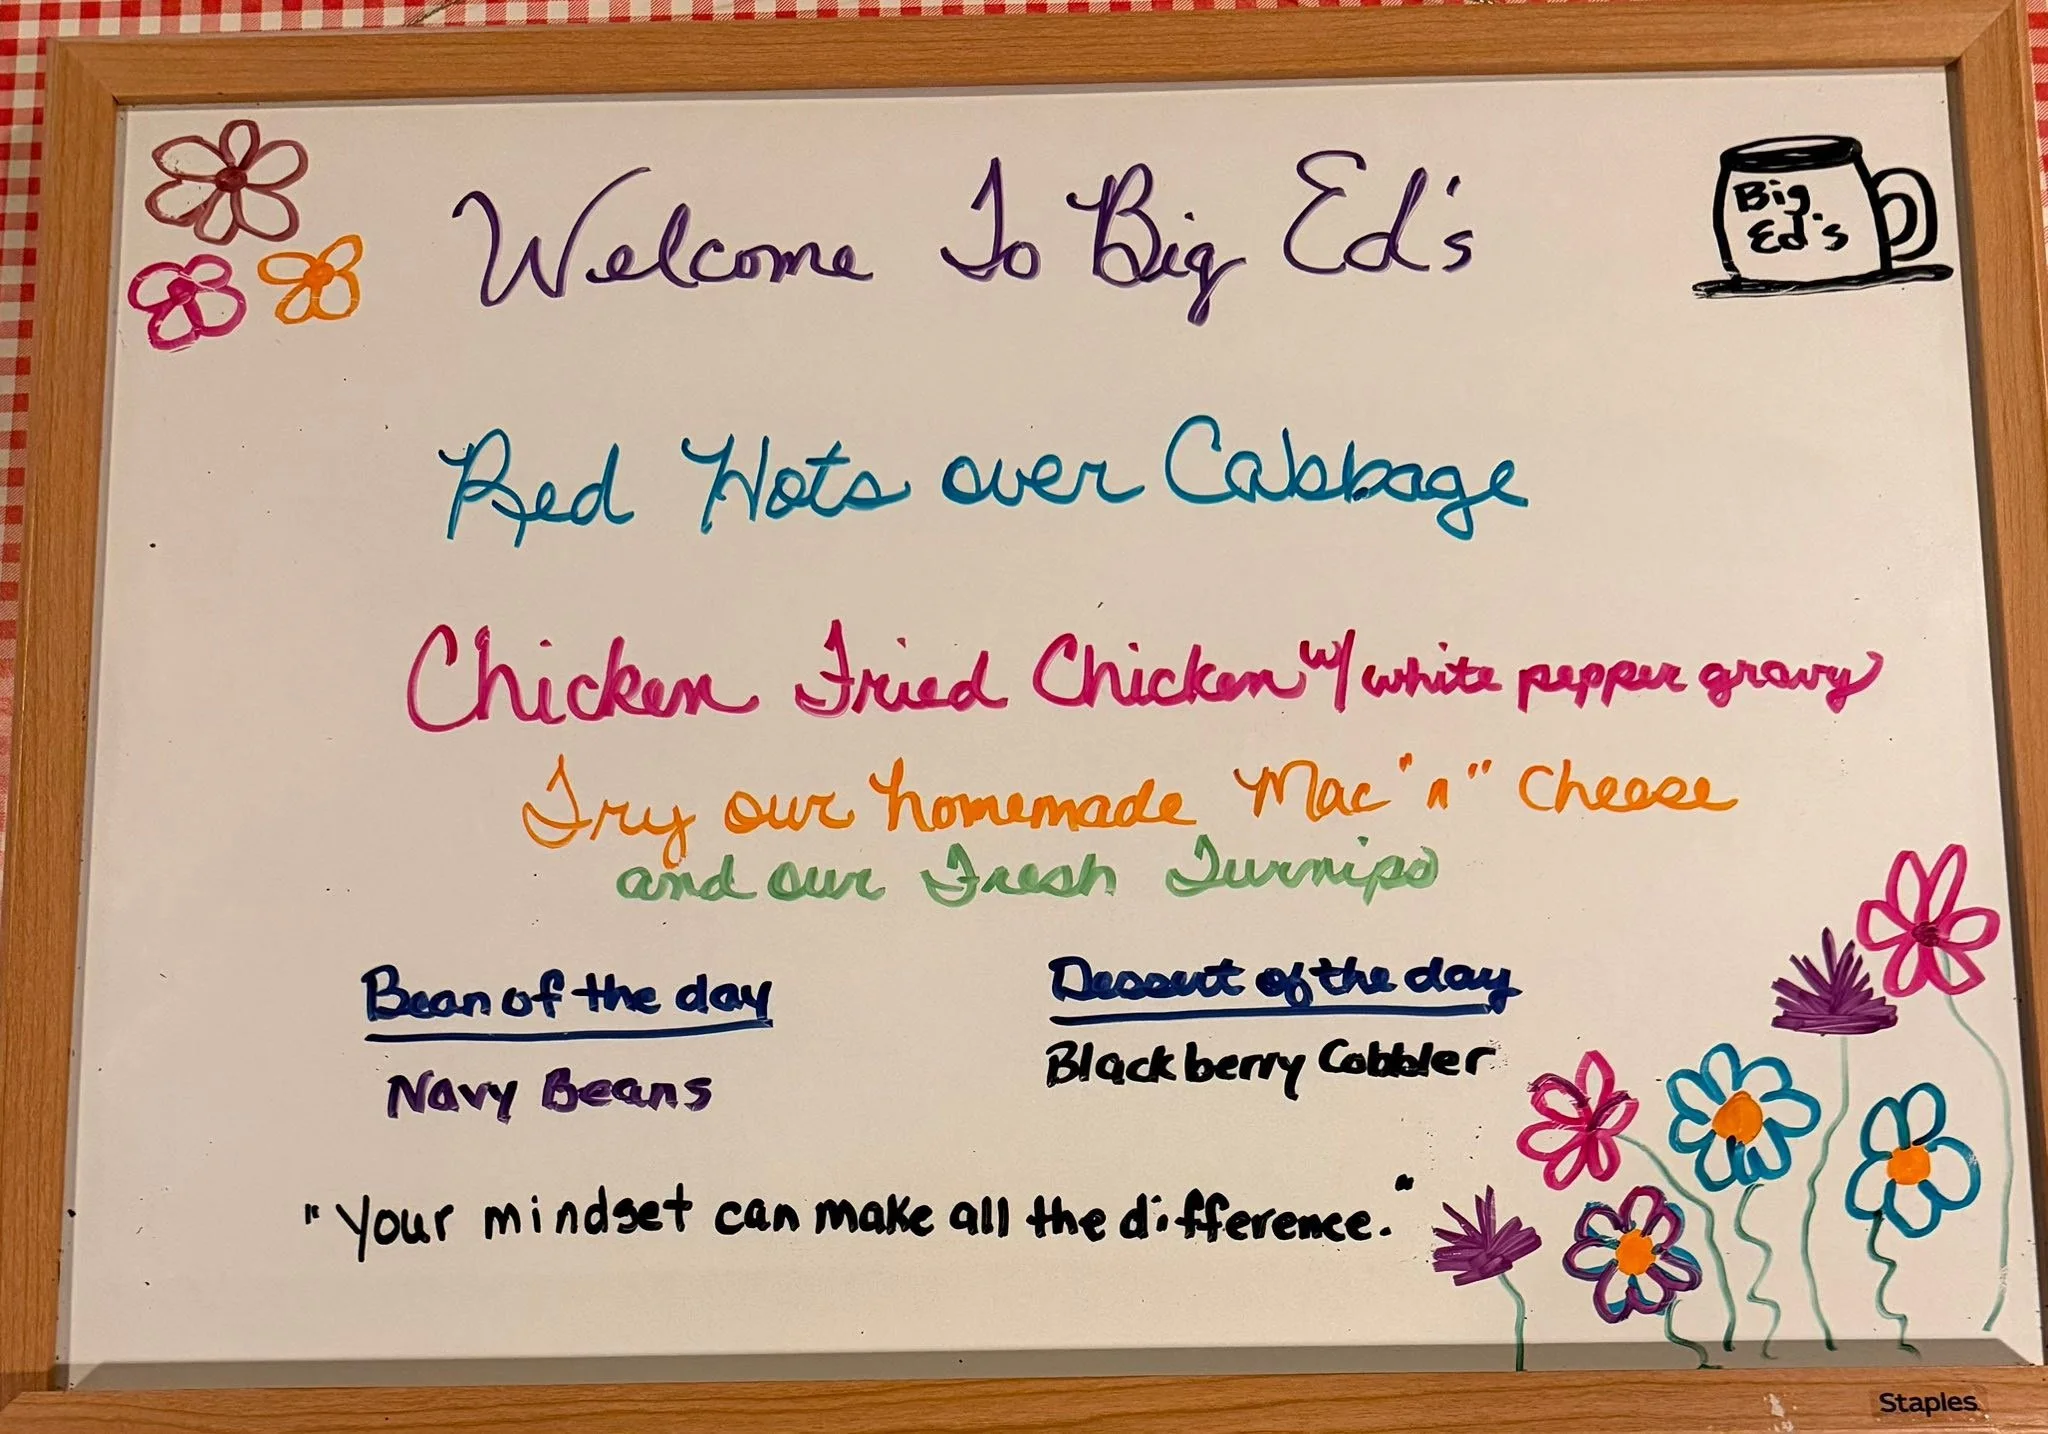 Welcome To Big Ed's
Big
Ed's
Red Hots over Cabbage
Chicken Fried Chicken w/ white pepper gravy
Try our homemade Mac "n" Cheese
and our Fresh Turnips
Bean of the day
Navy Beans
Dessert of the day
Blackberry Cobbler
"Your mindset can make all the difference."
Staples